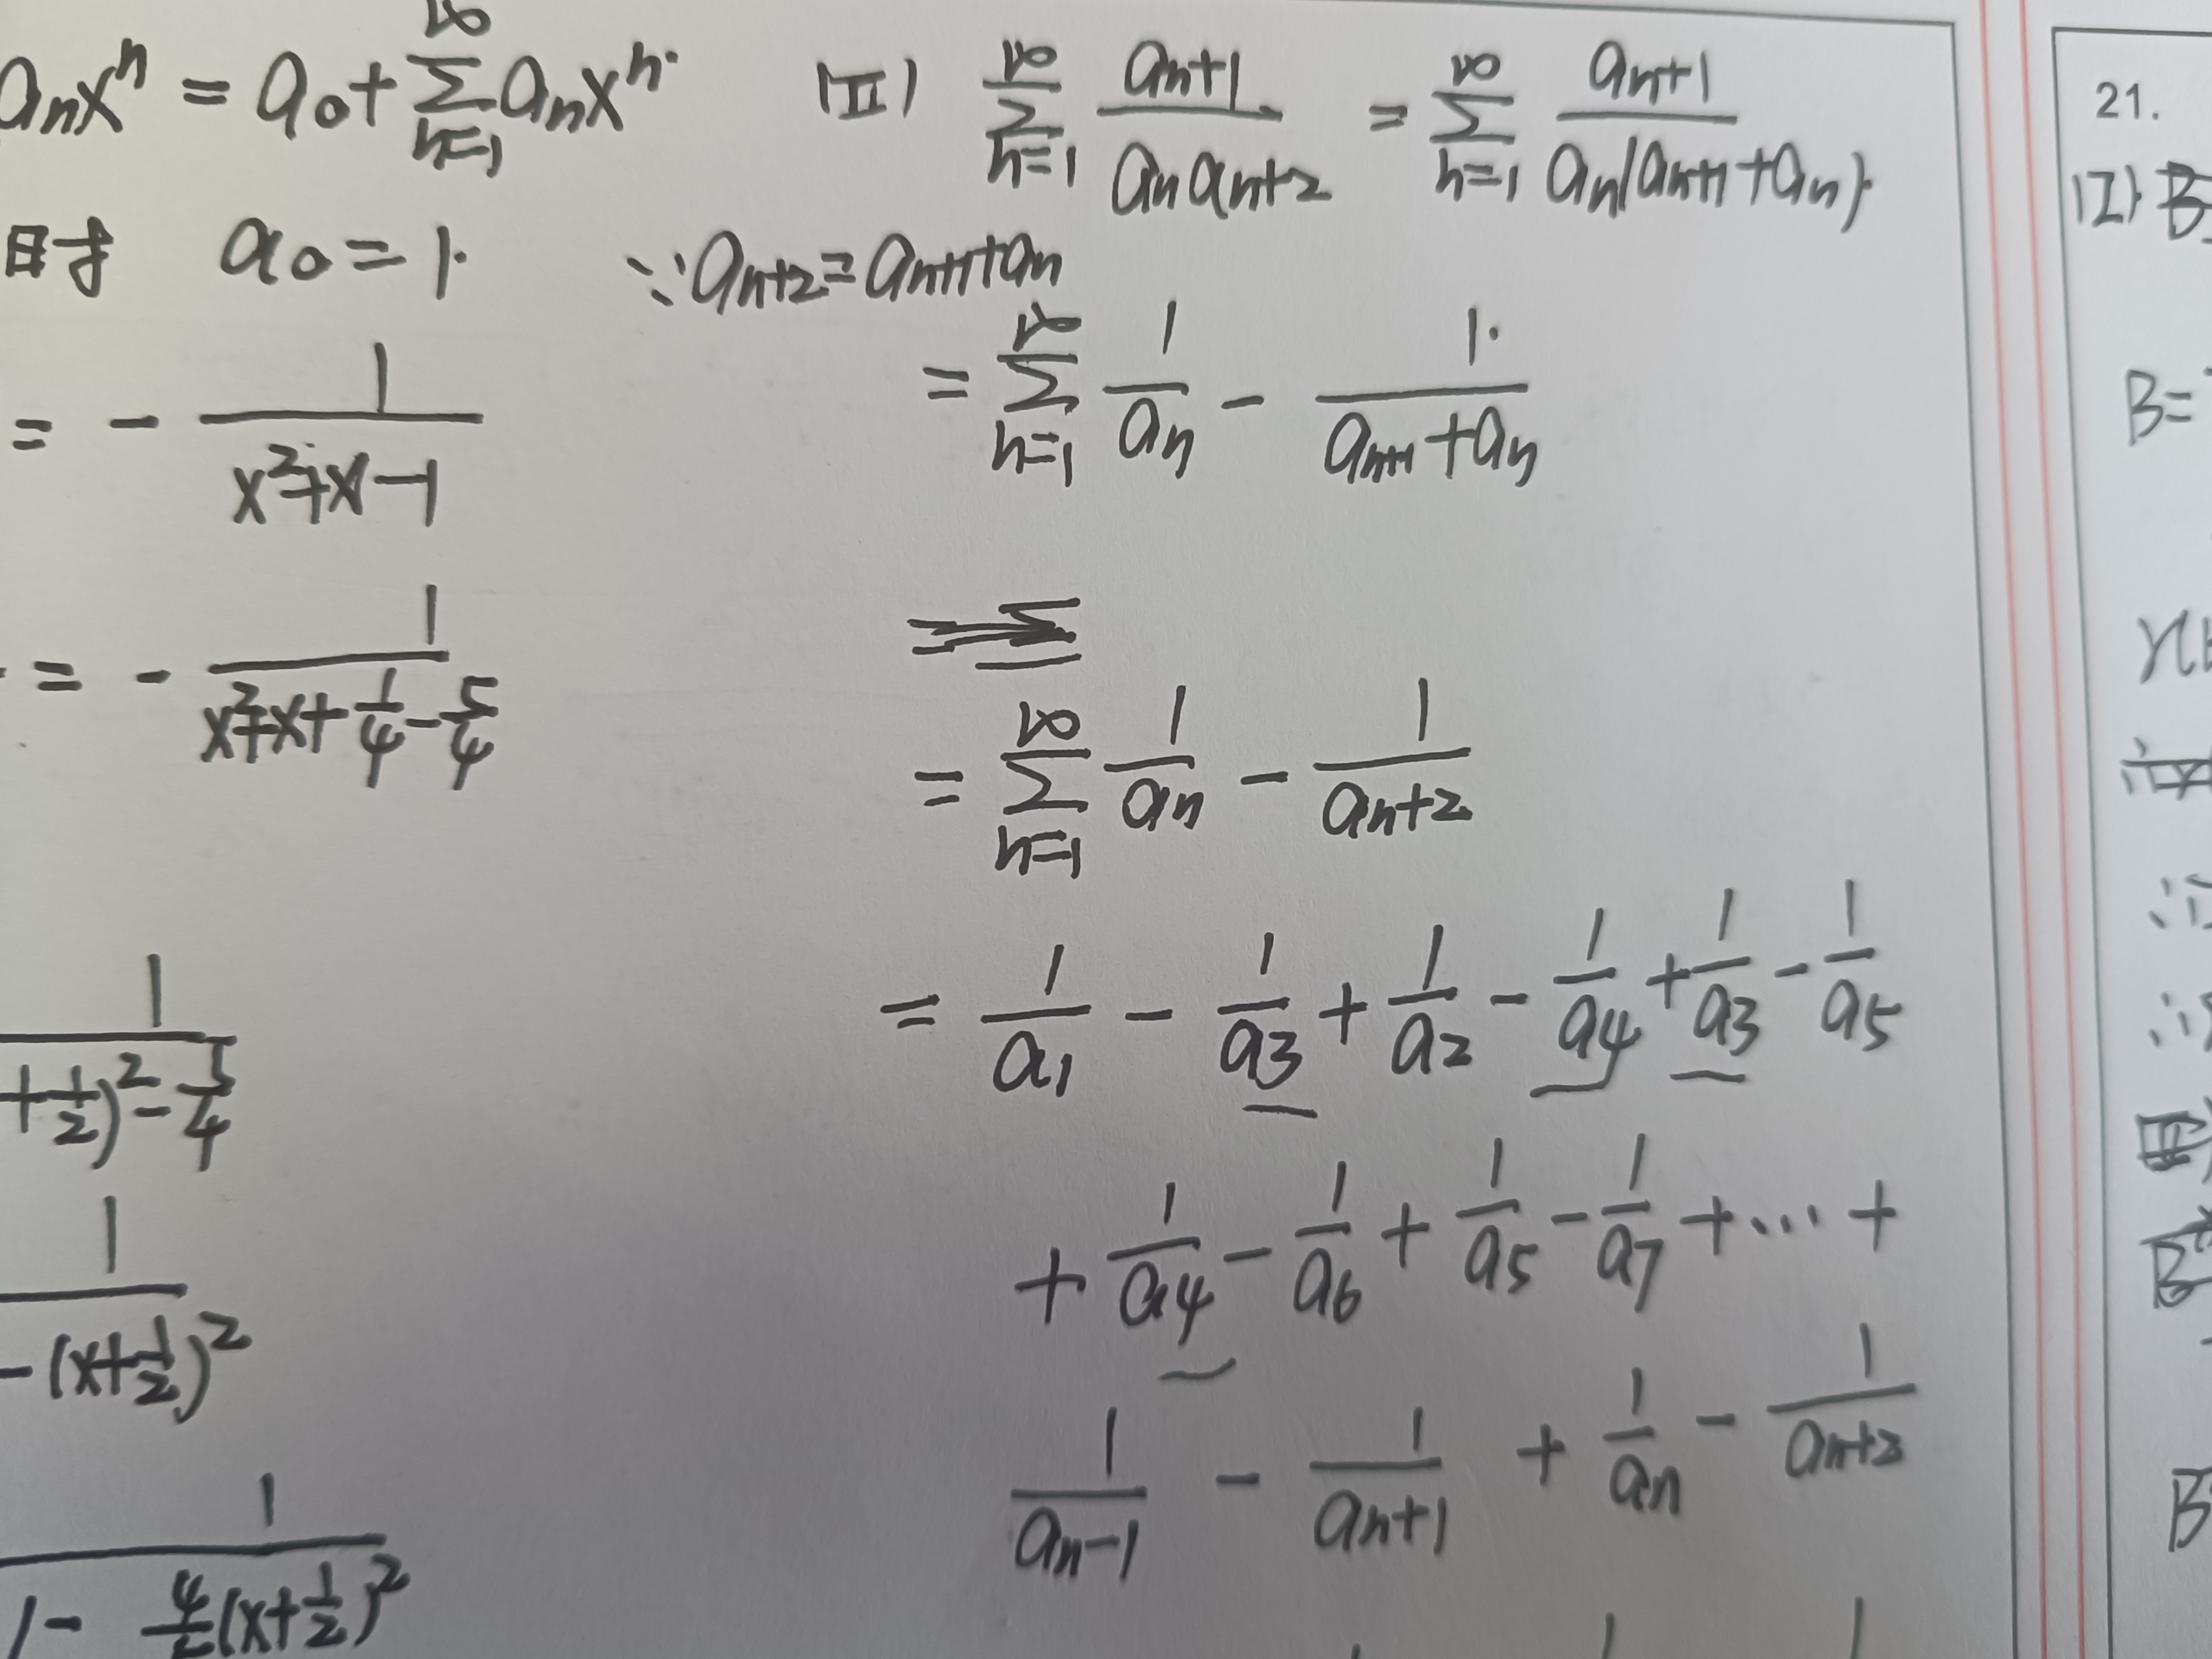 aₙxⁿ = a₀ + ∑_{n=1}^{∞} aₙxⁿ.
时 a₀ = 1.
= - 1/(x²+x-1)
= - 1/(x²+x+1/4-5/4)
1/(+1/2)²-5/4
1/-(x+1/2)²
1/1-4/5(x+1/2)²
(Ⅱ) ∑_{n=1}^{∞} aₙ₊₁/(aₙaₙ₊₂) = ∑_{n=1}^{∞} aₙ₊₁/(aₙ(aₙ₊₁+aₙ))
∵ aₙ₊₂=aₙ₊₁+aₙ
= ∑_{n=1}^{∞} 1/aₙ - 1/(aₙ₊₁+aₙ)
= ∑_{n=1}^{∞} 1/aₙ - 1/aₙ₊₂
= 1/a₁ - 1/a₃ + 1/a₂ - 1/a₄ + 1/a₃ - 1/a₅
+ 1/a₄ - 1/a₆ + 1/a₅ - 1/a₇ + ··· +
1/aₙ₋₁ - 1/aₙ₊₁ + 1/aₙ - 1/aₙ₊₂
21.
(Ⅰ) B
B=
B